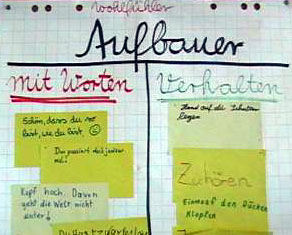 Wohlfühler
Aufbauer
mit Worten
Verhalten
Schön, dass du so
bist, wie du bist
Das passiert doch jedem
mal!
Kopf hoch. Davon
geht die Welt nicht
unter!
Hand auf die Schulter
legen
Zuhören
Einmal auf den Rücken
Klopfen